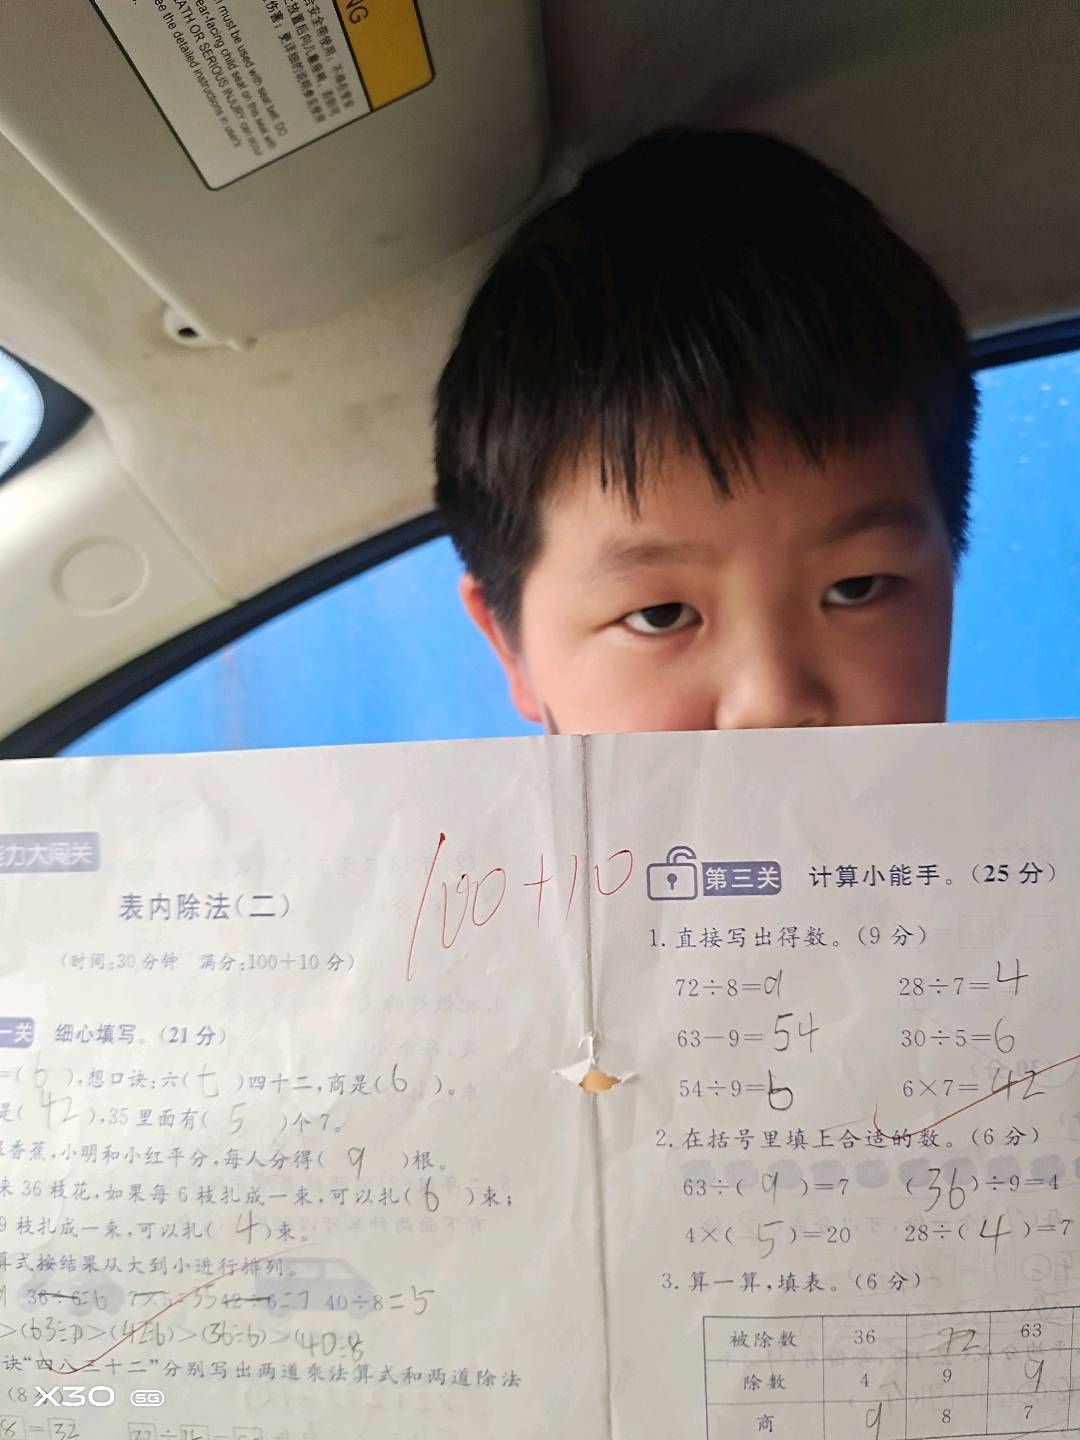 NG
must be used with seat belt. DO
rear-facing child seat on this seat with
DEATH OR SERIOUS INJURY can occur
see the detailed instructions in user's
能力大闯关
表内除法(二)
(时间:30分钟 满分:100+10分)
100+10
一关 细心填写。(21分)
=(6),想口诀:六(七)四十二,商是(6)。
是(42),35里面有(5)个7。
香蕉,小明和小红平分,每人分得(9)根。
来36枝花,如果每6枝扎成一束,可以扎(6)束;
9枝扎成一束,可以扎(4)束。
算式按结果从大到小进行排列。
36÷6=6 7×5=35 42÷6=7 40÷8=5
>(42÷6)>(36÷6)>(40÷8
诀“四八三十二”分别写出两道乘法算式和两道除法
(8
8=32
第三关 计算小能手。(25分)
1.直接写出得数。(9分)
72÷8=9 28÷7=4
63-9=54 30÷5=6
54÷9=6 6×7=42
2.在括号里填上合适的数。(6分)
63÷(9)=7 (36)÷9=4
4×(5)=20 28÷(4)=7
3.算一算,填表。(6分)
被除数 36 72 63
除数 4 9 9
商 9 8 7
X30 5G